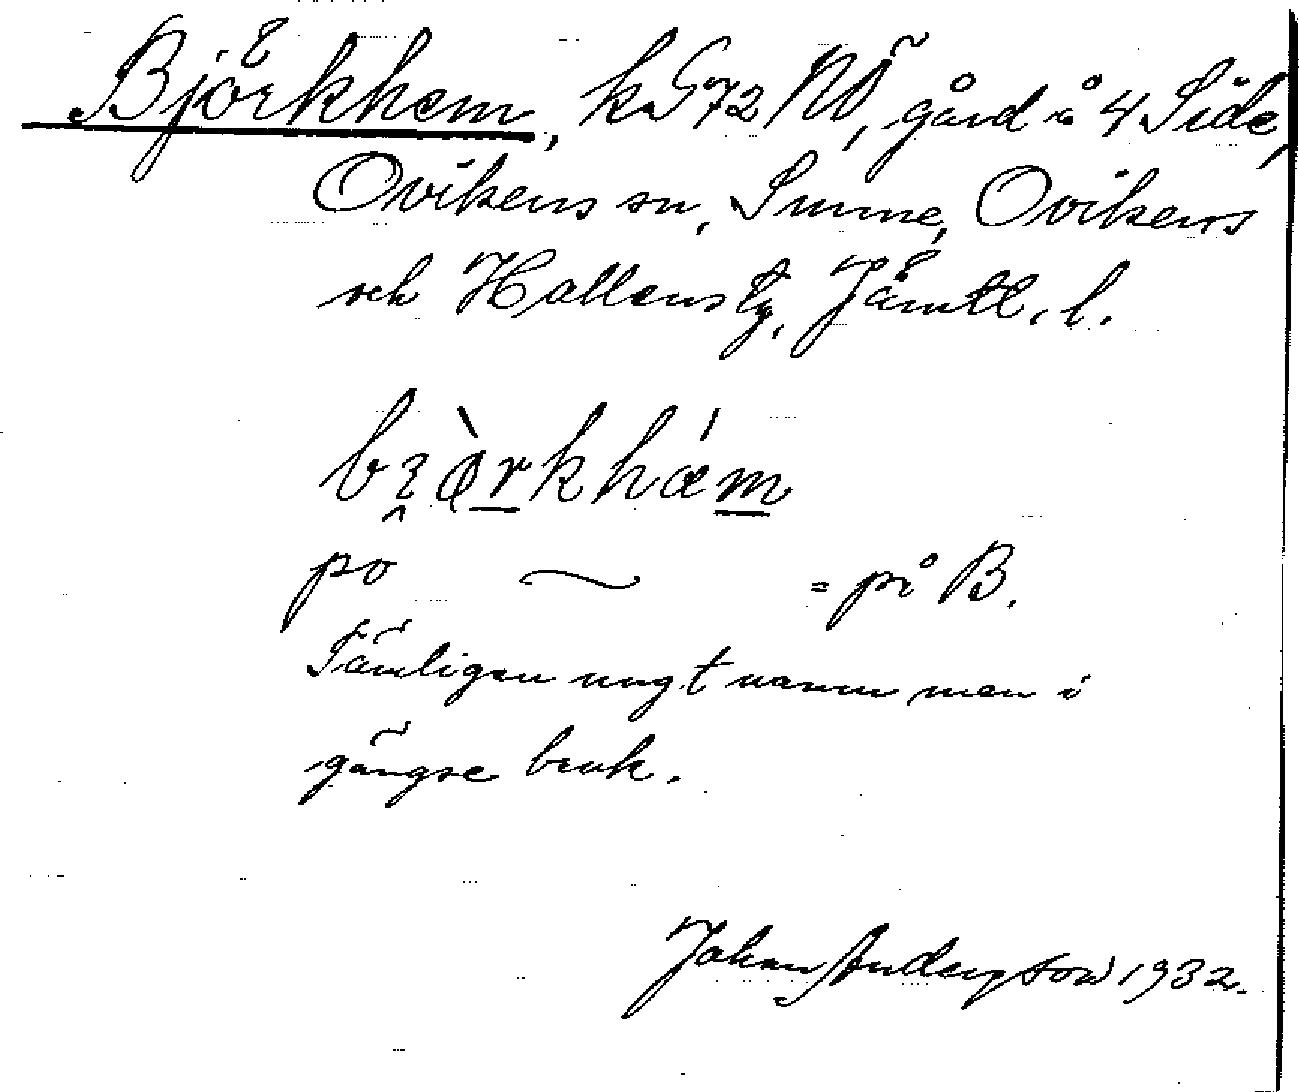 Björkhem, kS72 NÖ, gård å 4 Side,
Ovikens sn, Sunne, Ovikens
och Hallens tg, Jämtl. l.
po ~ = på B.
Tämligen ungt namn men i
gängse bruk.
Johan Anderson 1932.